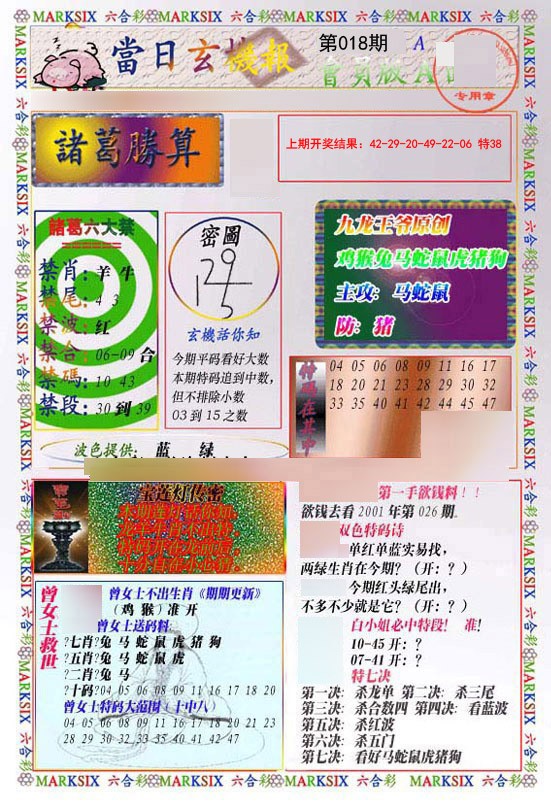 MARKSIX 六合彩 MARKSIX 六合彩 MARKSIX 六合彩 MARKSIX 六合彩 MARKSIX
當日玄機報
第018期
A
會員版A
专用章
諸葛勝算
上期开奖结果：42-29-20-49-22-06 特38
諸葛六大禁
禁肖：羊牛
禁尾：4 3
禁波：红
禁合：06-09合
禁碼：10 43
禁段：30到39
密圖
玄機話你知
今期平码看好大数
本期特码追到中数，
但不排除小数
03到15之数
九龙王爷原创
鸡猴兔马蛇鼠虎猪狗
主攻：马蛇鼠
防：猪
特码在其中
04 05 06 08 09 11 16 17
18 20 21 23 28 29 30 32
33 35 40 41 42 44 45 47
波色提供：蓝 绿
宝莲灯传密
第一手欲钱料！！
欲钱去看2001年第026期
双色特码诗
单红单蓝实易找，
两绿生肖在今期？（开：？）
今期红头绿尾出，
不多不少就是它？（开：？）
白小姐必中特段！ 准！
10-45开：？
07-41开：？
特七决
第一决：杀龙单 第二决：杀三尾
第三决：杀合数四 第四决：看蓝波
第五决：杀红波
第六决：杀五门
第七决：看好马蛇鼠虎猪狗
曾女士救世
曾女士不出生肖《期期更新》
（鸡 猴）准开
曾女士送码料：
?七肖?兔 马 蛇 鼠 虎 猪 狗
?五肖?兔 马 蛇 鼠 虎
?二肖?兔 马
?十码?04 05 06 08 09 11 16 17 18 20
曾女士特码大范围（十中八）
04 05 06 08 09 11 16 17 18 20 21 23
28 29 30 32 33 35 40 41 42 47
MARKSIX 六合彩 MARKSIX 六合彩 MARKSIX 六合彩 MARKSIX 六合彩 MARKSIX